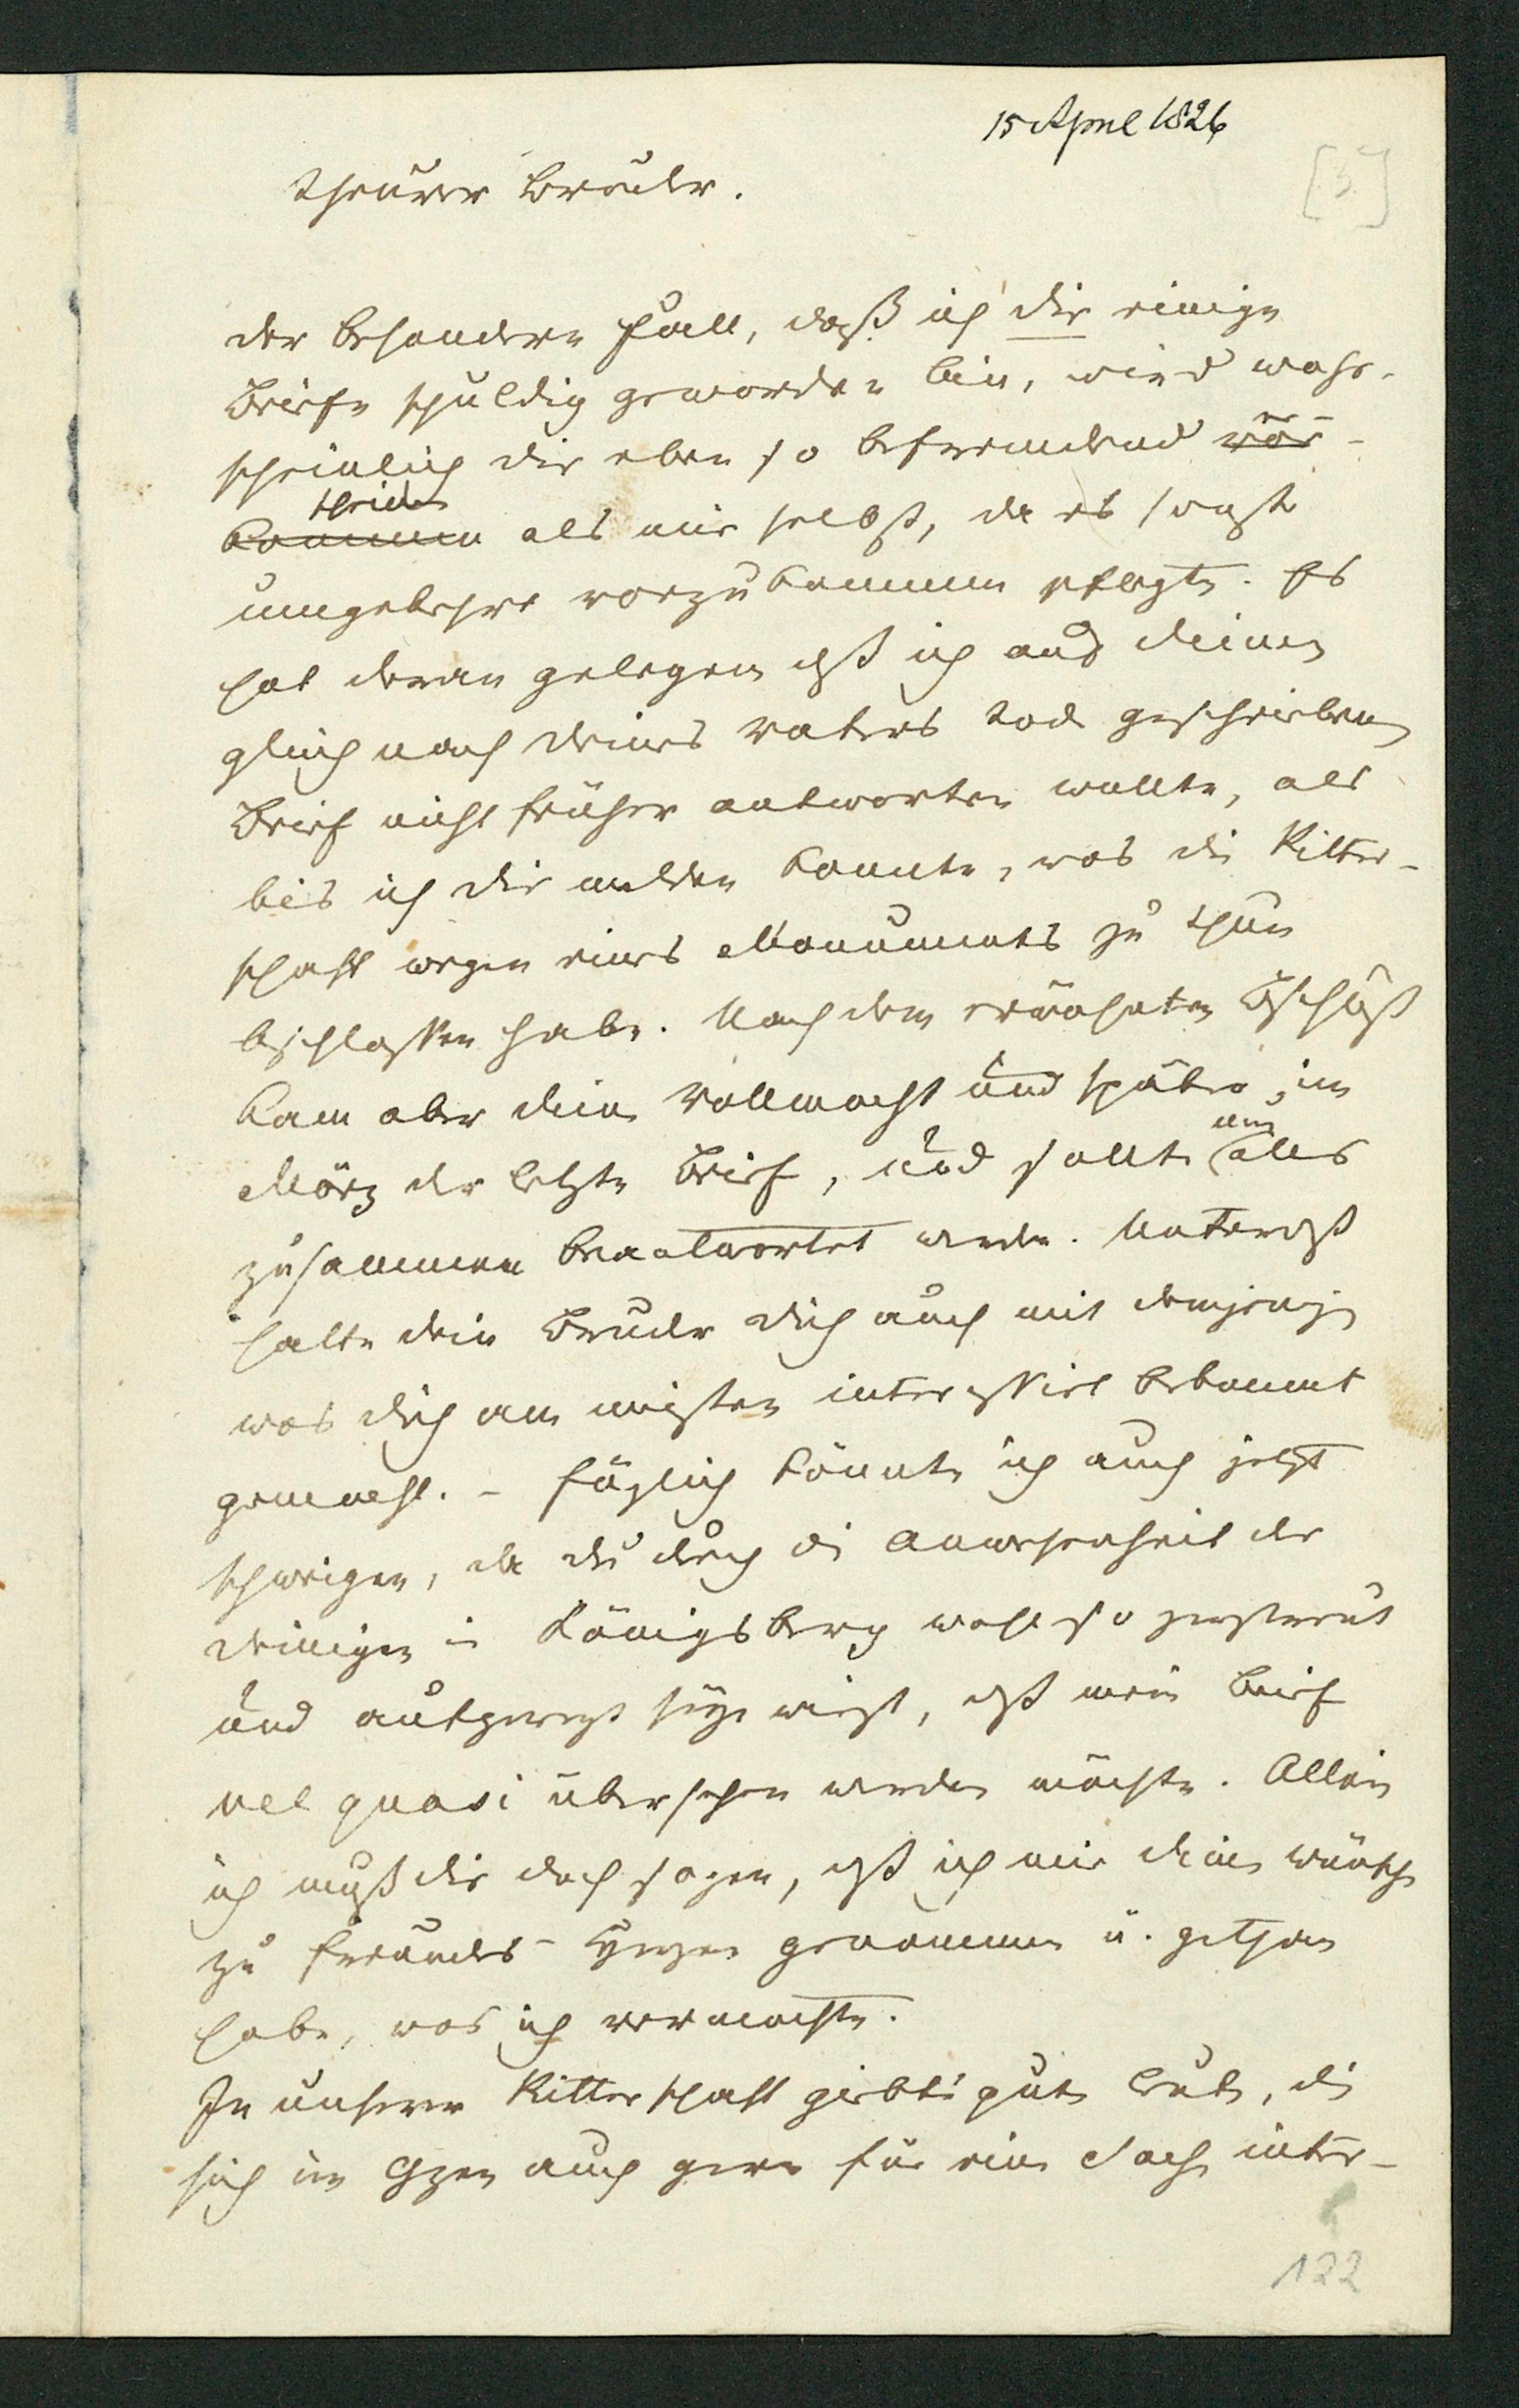 15 April 1826
[3]
Theurer Bruder.
der besondere Fall, daß ich dir einige
Briefe schuldig geworden bin, wird wahr-
scheinlich dir eben so befremdend vor-
kommen als mir selbst, da es sonst
umgekehrt vorzukommen pflegte. Es
hat daran gelegen daß ich auf deinen
gleich nach deines Vaters Tode geschriebenen
Brief nicht früher antworten wollte, als
bis ich dir melden konnte, was die Ritter-
schaft wegen eines Monuments zu thun
beschlossen habe. Nach dem erwähnten Beschluß
kam aber deine Vollmacht und später im
März der letzte Brief, und sollte nun alles
zusammen beantwortet werden. Unterdeß
hatte dein Bruder dich auch mit demjenigen
was dich am meisten interessirt bekannt
gemacht. – Füglich könnte ich auch jetzt
schweigen, da du durch die Anwesenheit der
deinigen in Königsberg wohl so zerstreut
und aufgeregt seyn wirst, daß mein Brief
vel quasi übersehen werden möchte. Allein
ich muß dir doch sagen, daß ich mir deine Wünsche
zu Freundes-Herzen genommen u. gethan
habe, was ich vermochte.
In unserer Ritterschaft giebts gute Leute, die
sich im Ganzen auch gern für eine Sache inter-
122